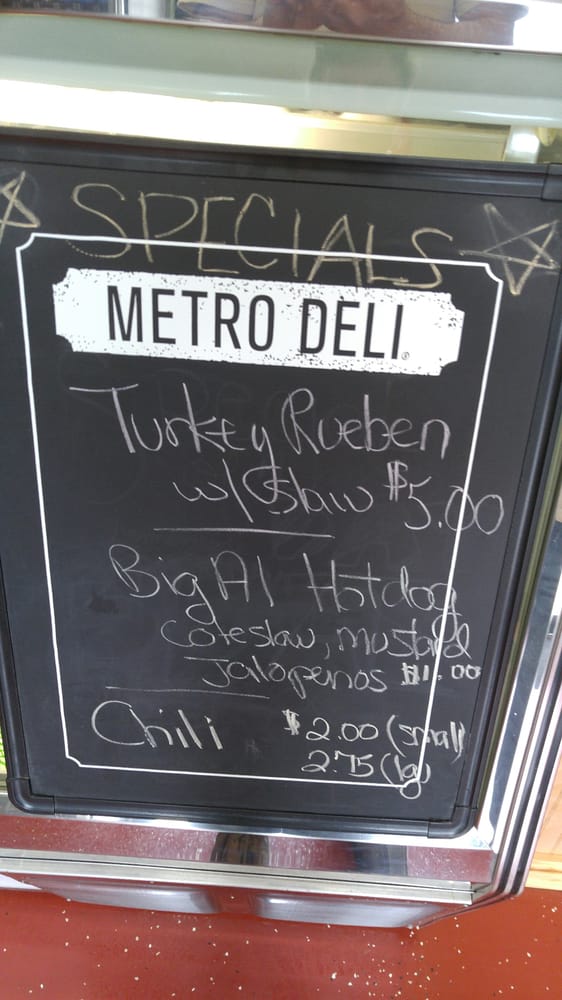 SPECIALS
METRO DELI
Turkey Rueben
w/ slaw $5.00
Big Al Hotdog
Coleslaw, mustard
Jalapenos $1.00
Chili $2.00 (small)
2.75 (lg)